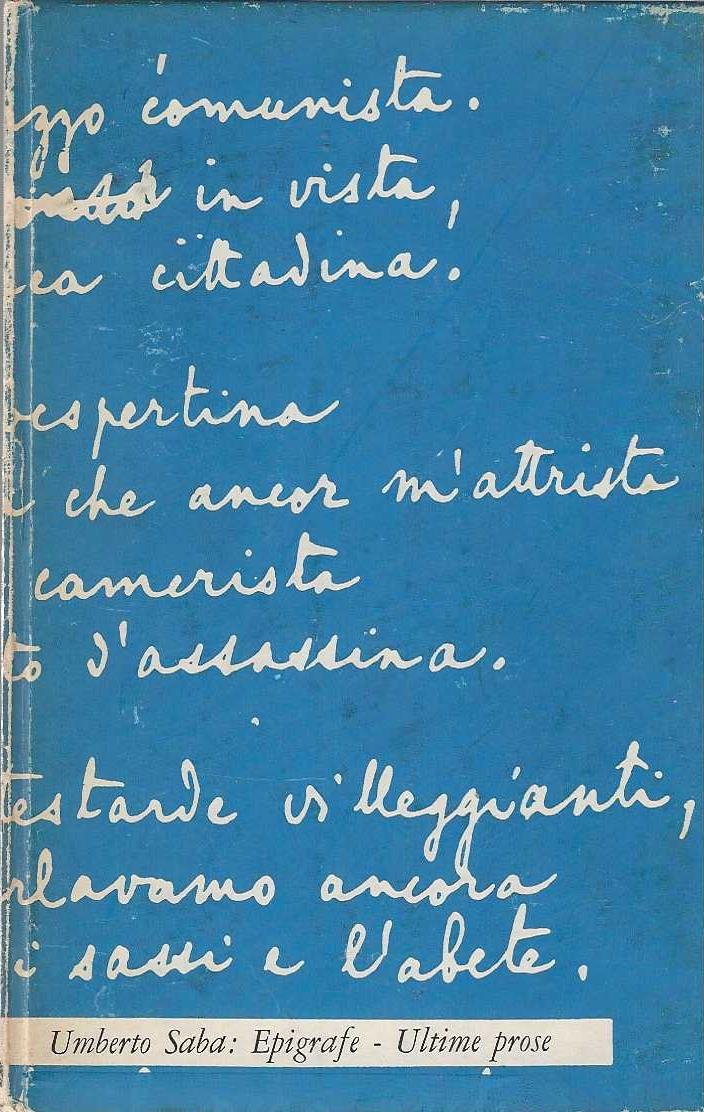 zzo comunista.
in vista,
ea cittadina.
vespertina
che ancor m'attrista
camerista
to d'assassina.
testarde villeggianti,
rlavamo ancora
i sassi e l'abete.
Umberto Saba: Epigrafe - Ultime prose